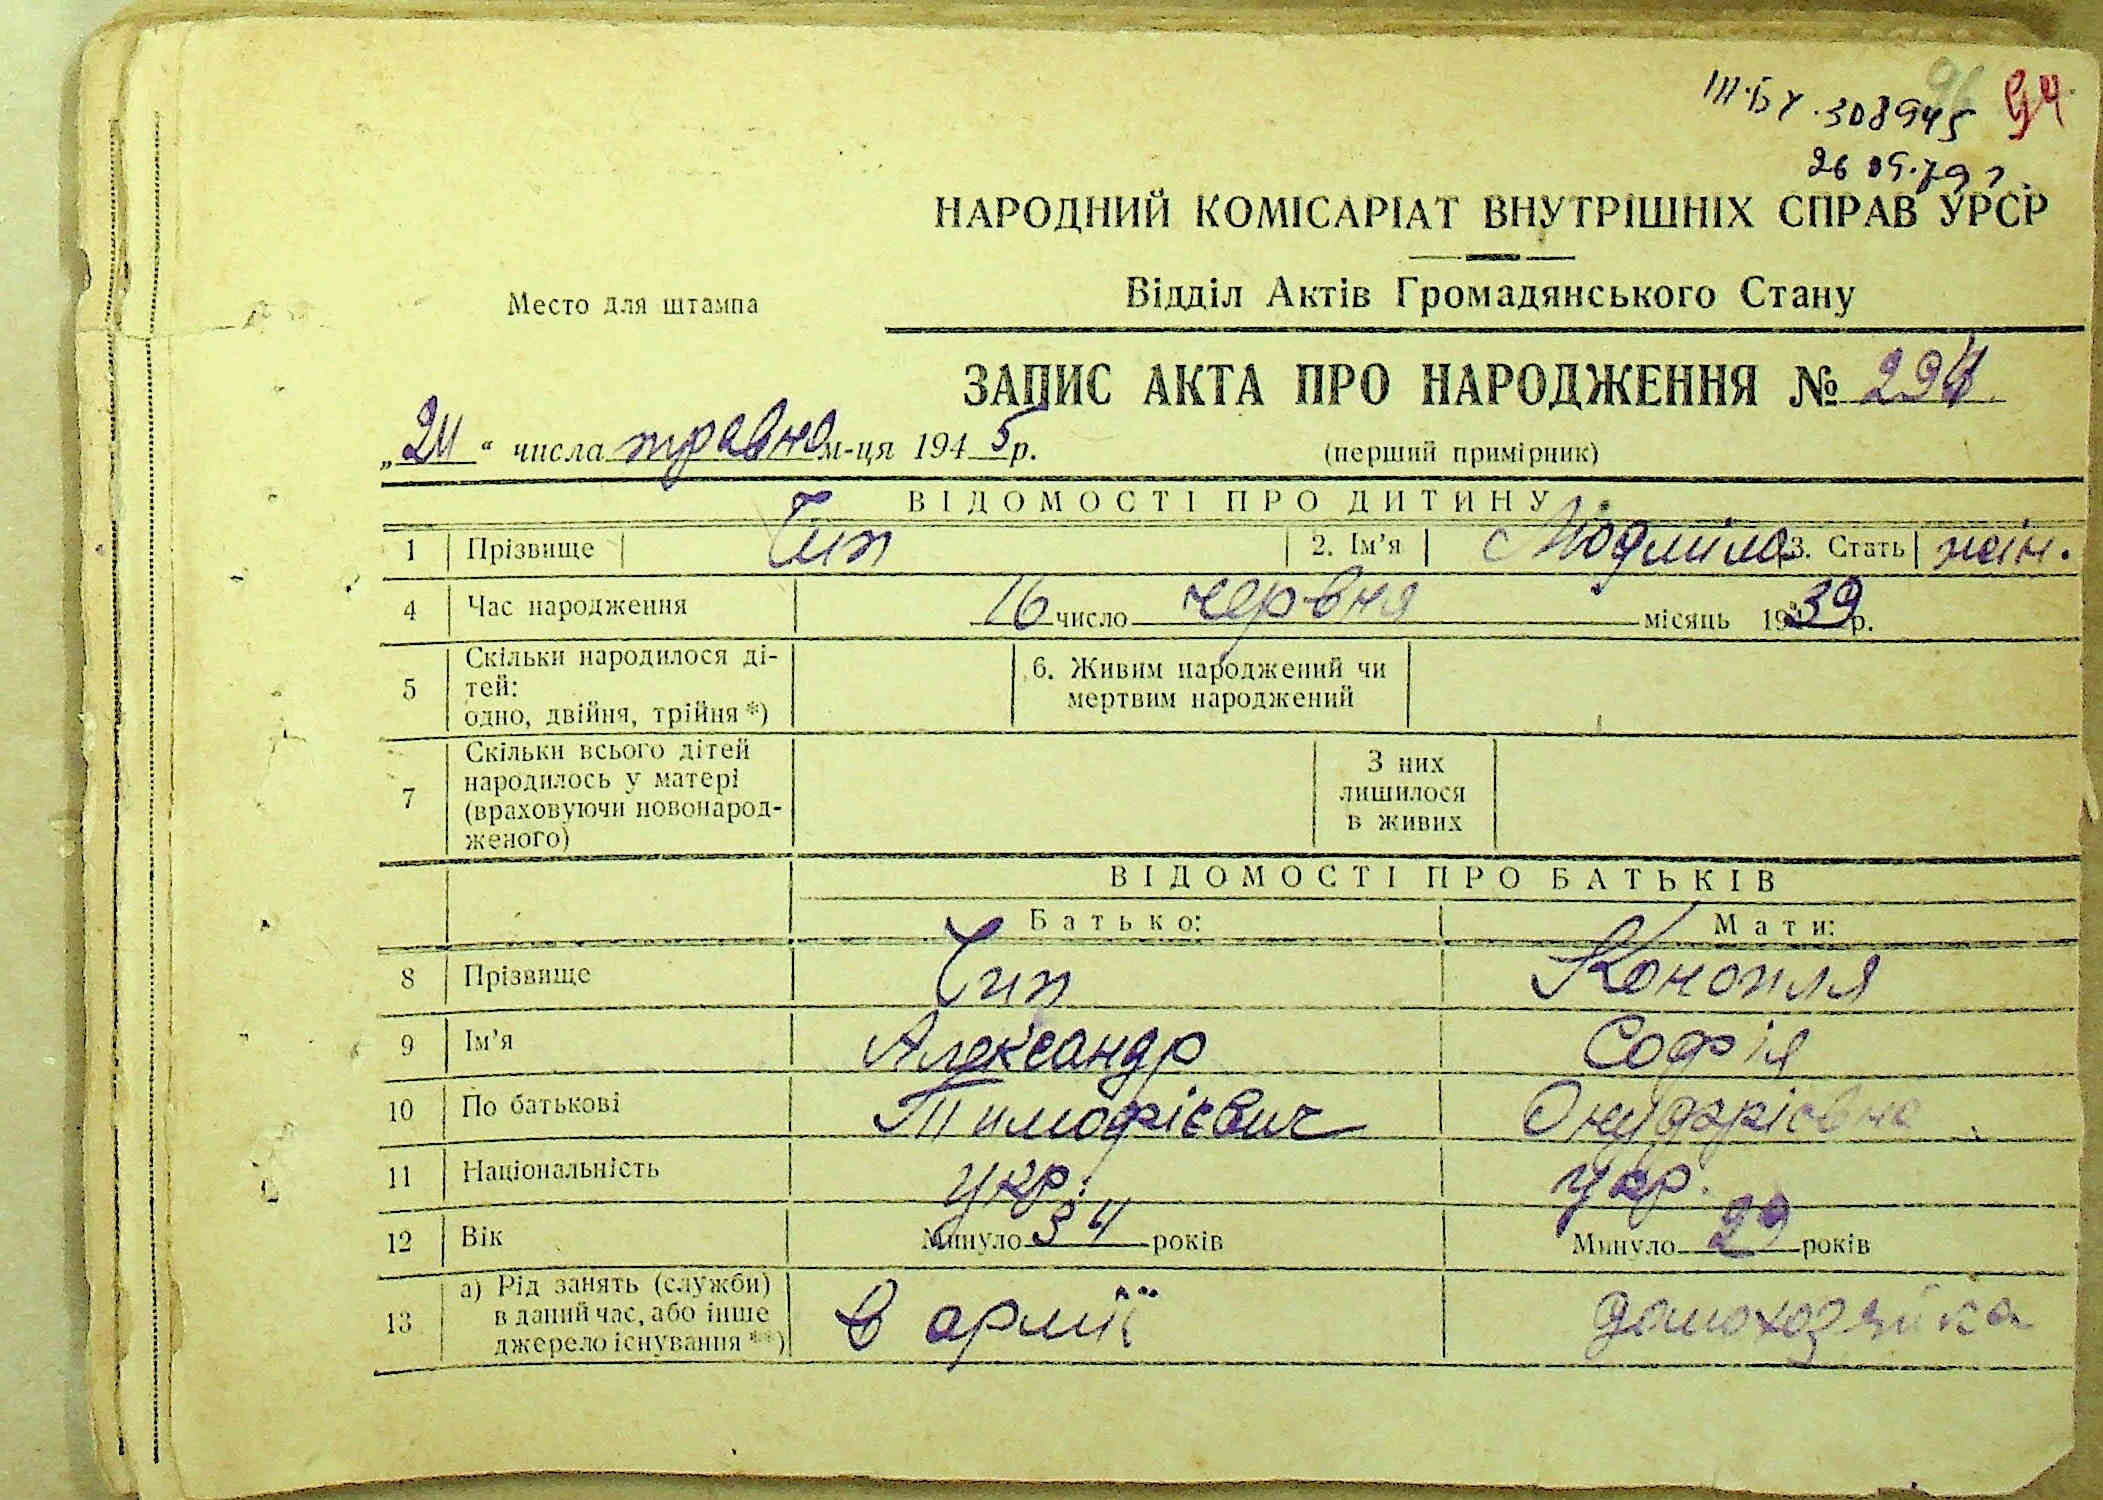 ІІІ-БУ. 308945 94
26 05.79 г.
НАРОДНИЙ КОМІСАРІАТ ВНУТРІШНІХ СПРАВ УРСР
Место для штампа
Відділ Актів Громадянського Стану
ЗАПИС АКТА ПРО НАРОДЖЕННЯ № 294
„24“ числа травня м-ця 1945 р. (перший примірник)
ВІДОМОСТІ ПРО ДИТИНУ
1 Прізвище Чип 2. Ім’я Людмила 3. Стать жін.
4 Час народження 16 число червня місяць 1939 р.
5 Скільки народилося ді-
тей:
одно, двійня, трійня *)
6. Живим народжений чи
мертвим народжений
7 Скільки всього дітей
народилось у матері
(враховуючи новонарод-
женого)
З них
лишилося
в живих
ВІДОМОСТІ ПРО БАТЬКІВ
Батько: Мати:
8 Прізвище Чип Конопля
9 Ім’я Александр Софія
10 По батькові Тимофієвич
11 Національність укр. укр.
12 Вік Минуло 34 років Минуло 29 років
13 а) Рід занять (служби)
в даний час, або інше
джерело існування **)
В армії домохозяйка